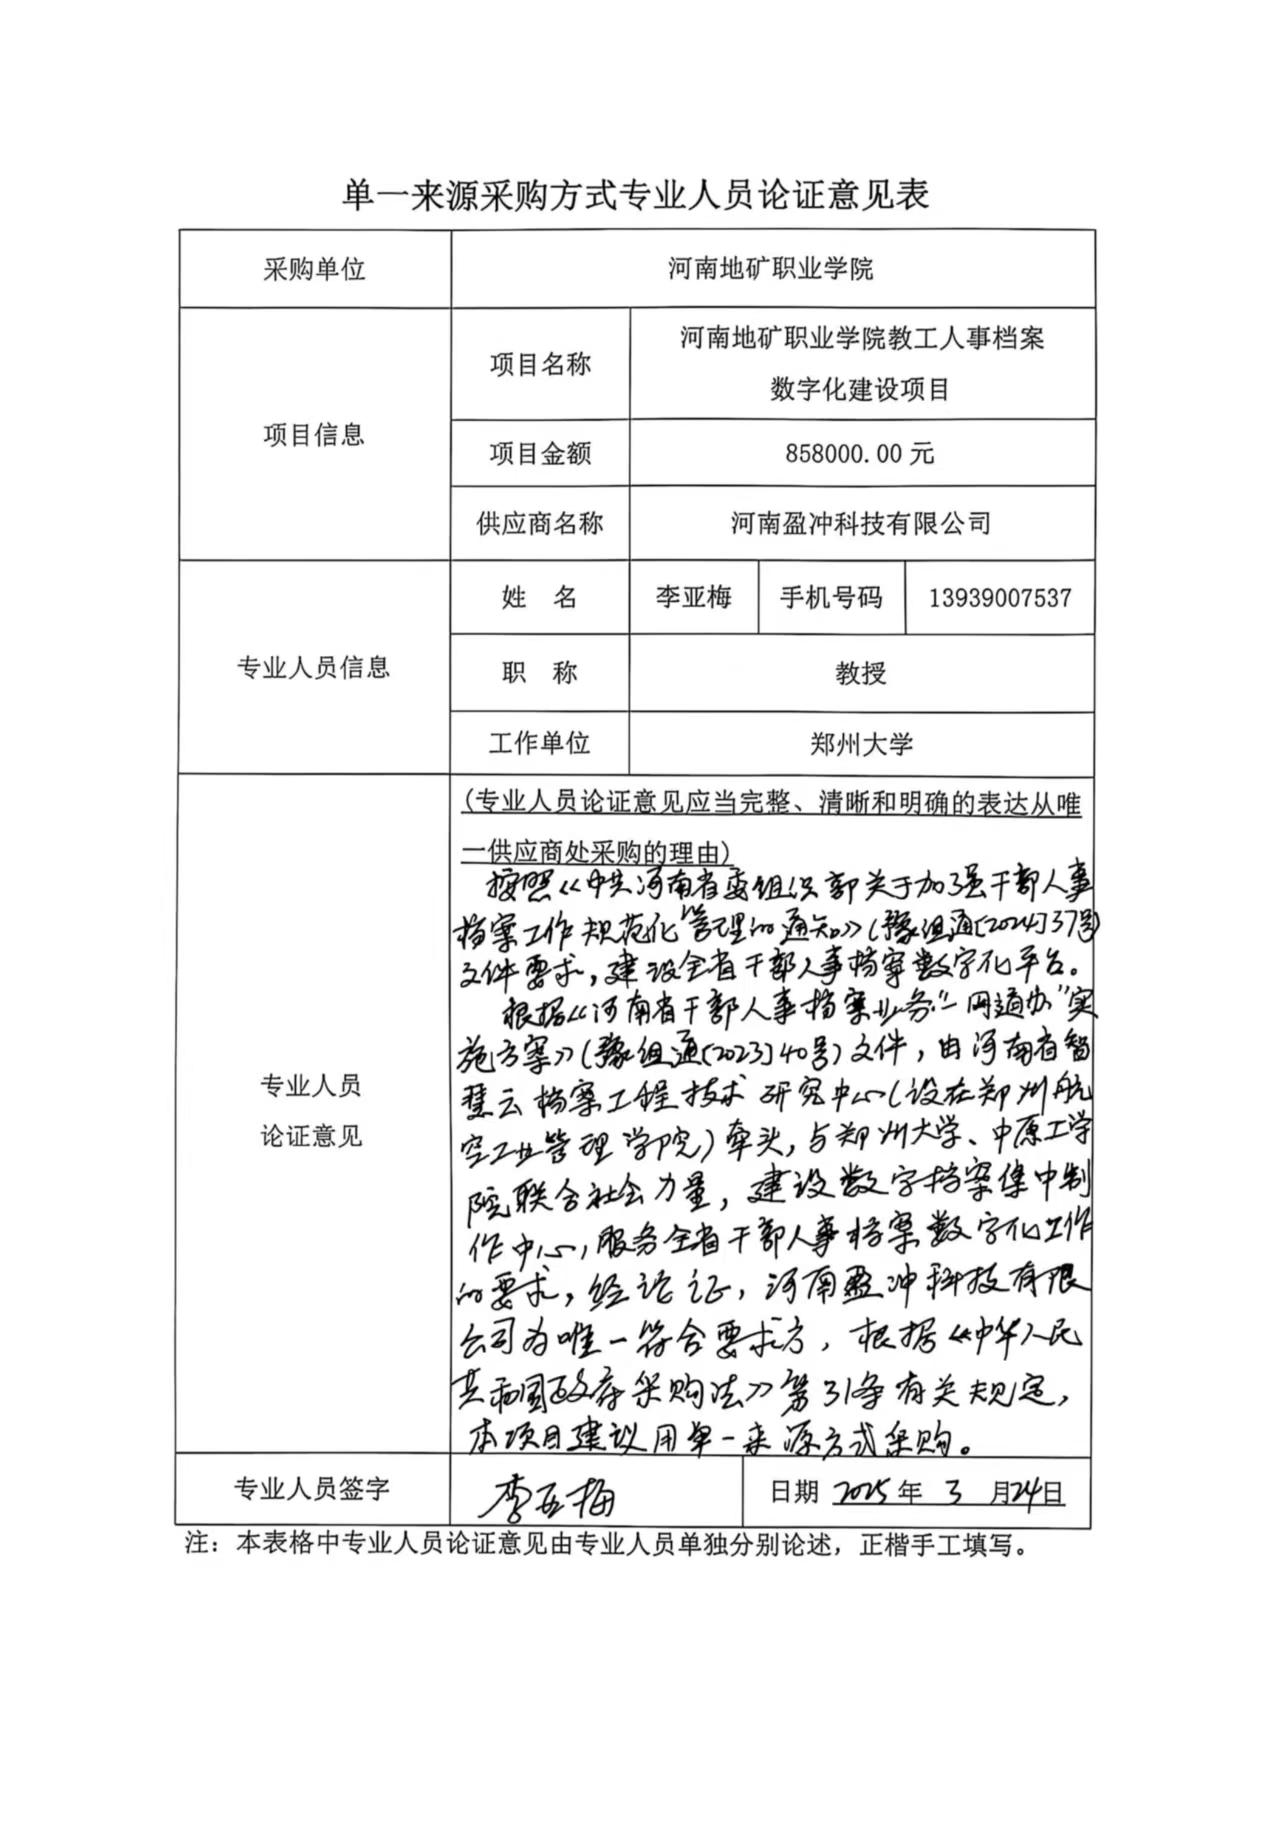 单一来源采购方式专业人员论证意见表
采购单位 河南地矿职业学院
项目信息
项目名称 河南地矿职业学院教工人事档案
数字化建设项目
项目金额 858000.00 元
供应商名称 河南盈冲科技有限公司
专业人员信息
姓 名 李亚梅 手机号码 13939007537
职 称 教授
工作单位 郑州大学
专业人员
论证意见
(专业人员论证意见应当完整、清晰和明确的表达从唯
一供应商处采购的理由)
按照《中共河南省委组织部关于加强干部人事
档案工作规范化管理的通知》(豫组通[2024]37号)
文件要求,建设全省干部人事档案数字化平台。
根据《河南省干部人事档案业务"一网通办"实
施方案》(豫组通[2023]40号)文件,由河南省智
慧云档案工程技术研究中心(设在郑州航
空工业管理学院)牵头,与郑州大学、中原工学
院联合社会力量,建设数字档案集中制
作中心,服务全省干部人事档案数字化工作
的要求,经论证,河南盈冲科技有限
公司为唯一符合要求方,根据《中华人民
共和国政府采购法》第31条有关规定,
本项目建议用单一来源方式采购。
专业人员签字 李亚梅 日期 2025 年 3 月 24 日
注：本表格中专业人员论证意见由专业人员单独分别论述，正楷手工填写。